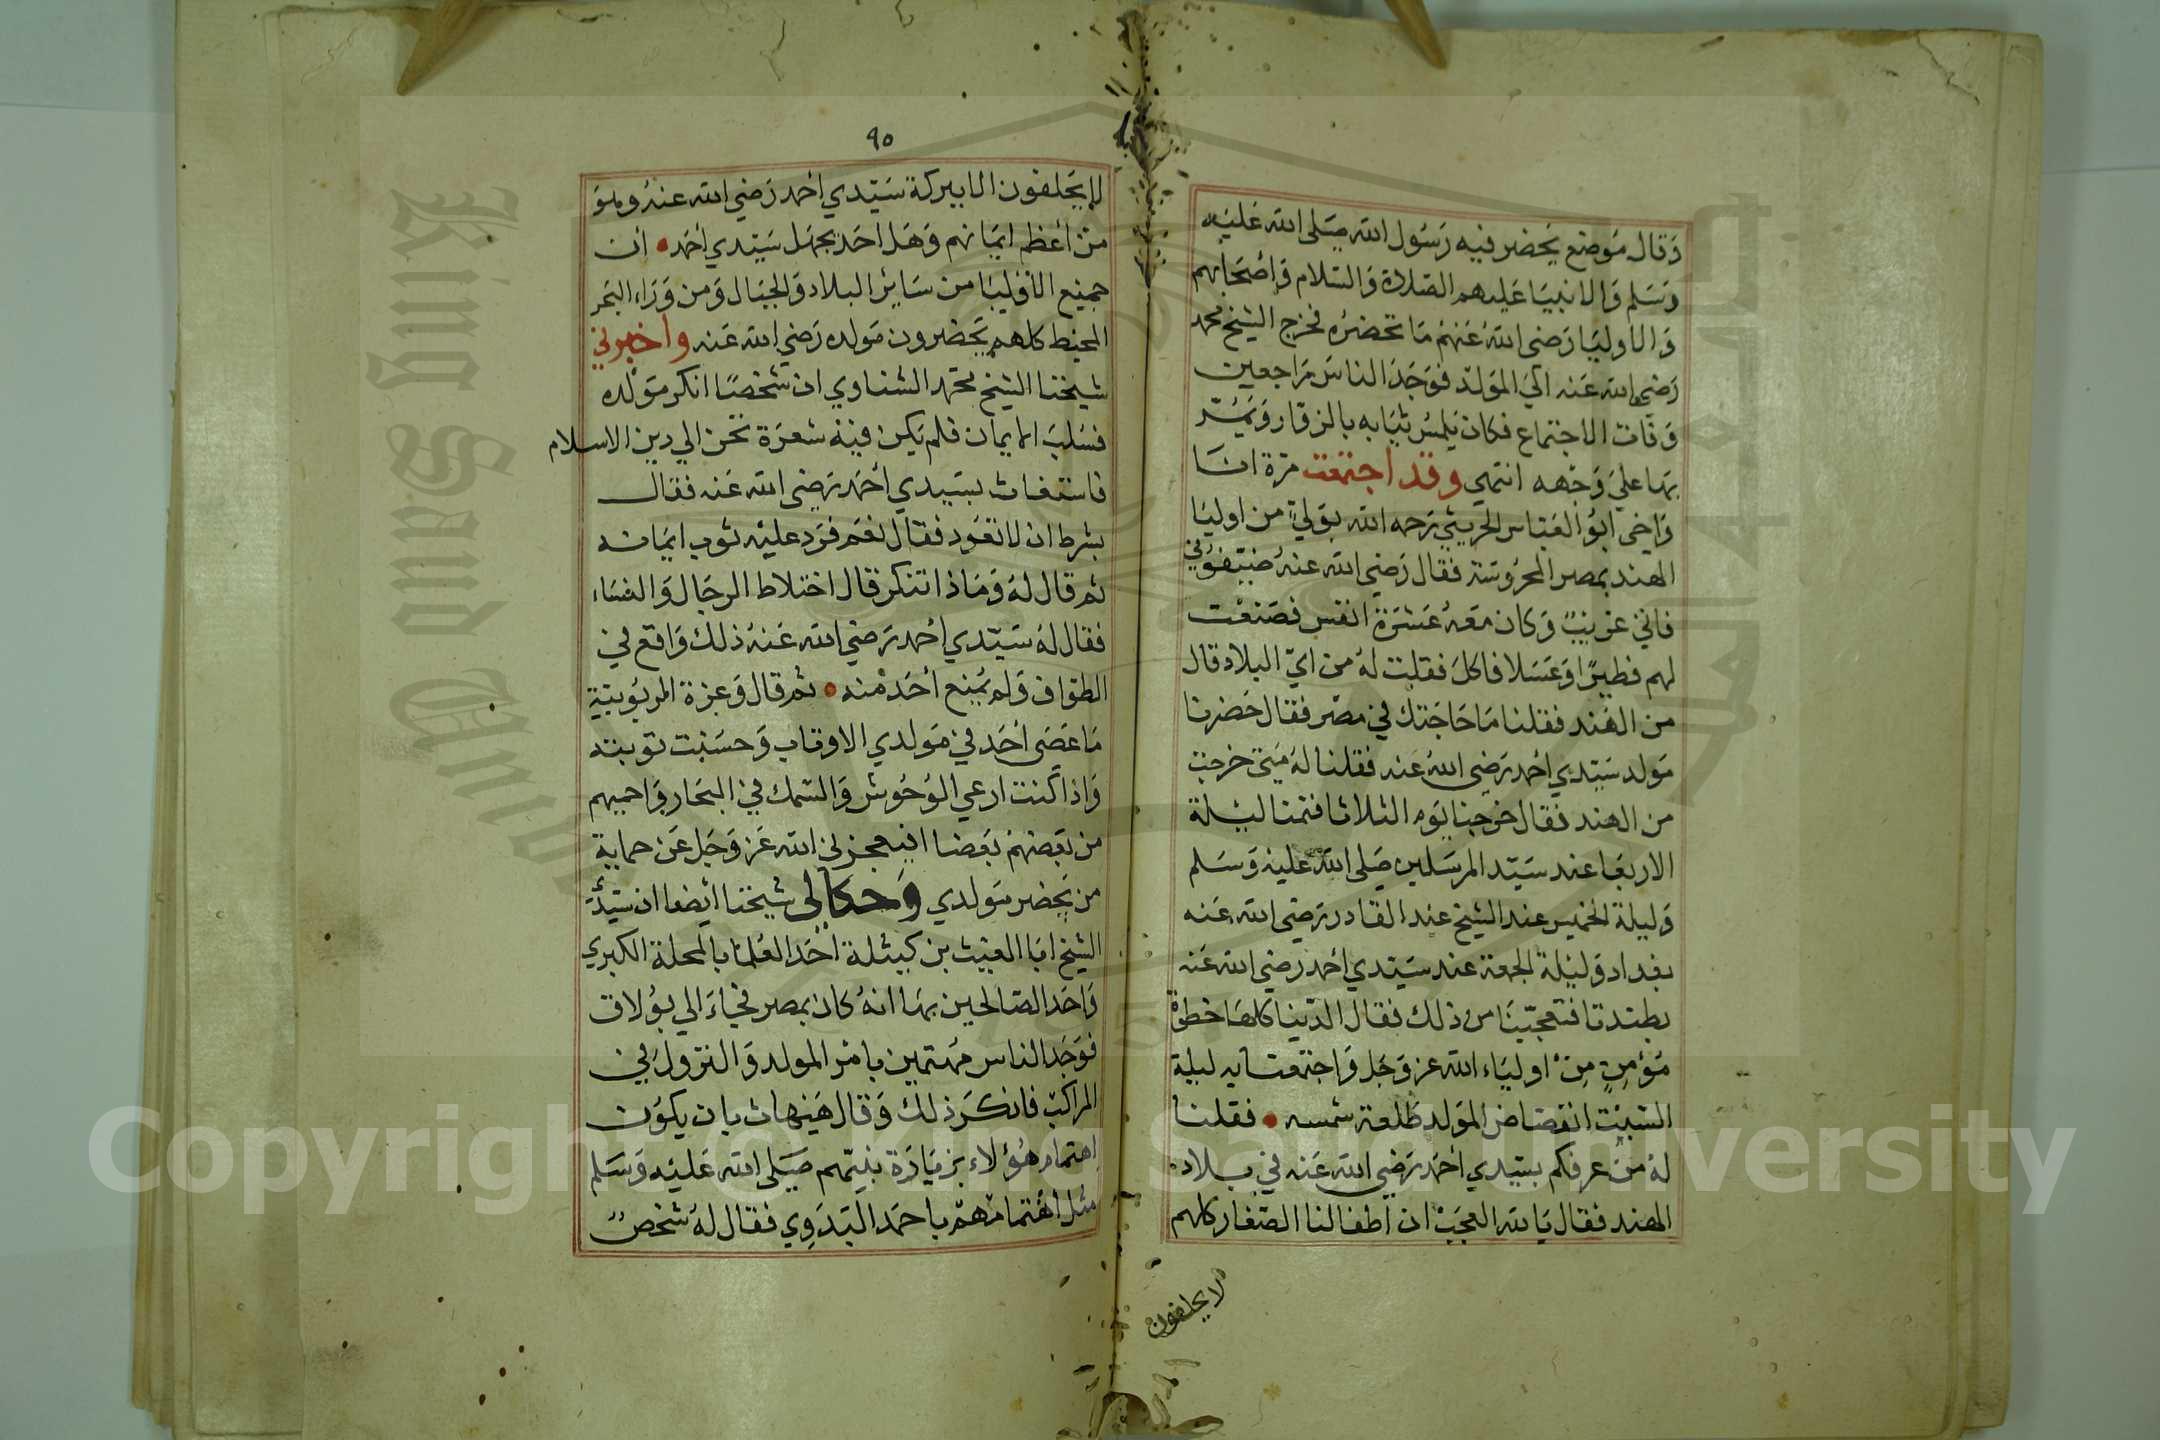 وَقال مَوضع يَحضر فيه رَسُول الله صَلى الله عَليه
وَسَلم وَالانبيَا عَليهم الصَلاة وَالسَلام وَاصحَابهم
وَالاوليَا رَضى اللهُ عَنهُم مَا تحضرُه فخرج الشيخ محمد
رَضى الله عَنه الَى المَولد فوَجَدَ الناسَ رَاجعين
وَفات الاجتماع فكان يَلمسُ ثيَابه بالزقار وَيمُرّ
بهَا علي وَجْهه انتهي وقد اجتمعت مرة انا
وَاخى ابوُ العَباس الحريثي رَحمه الله بوَليّ من اوليَا
الهند بمصر المحرُوسَة فقال رَضى الله عنهُ ضيّفوُني
فاني غريبٌ وَكان مَعَهُ عَشرَة انفس فصَنعْت
لهم فطيرًا وَعَسَلا فاكلَ فقلت لهُ من ايّ البلاد قال
من الهَند فقلنا مَا حَاجَتك في مصْر فقال حَضرنا
مَولد سَيّدي احمد رَضى اللهُ عَنه فقلنا لهُ مَتى خرجت
من الهند فقال خرجنا يَوم الثلاثا فنمنا ليْلة
الاربعَا عند سَيّد المرسَلين صَلى الله عليه وَسَلم
وَليلة الخميس عند الشيخ عند القادر رَضى الله عَنه
ببغداد وَليْلة الجمعة عند سَيّدي احمد رَضي الله عَنه
بطندتا فتعجّبنَا من ذلك فقال الدّنيا كلهَا خطوَة
مؤمِنٍ مِنْ اوليَاء الله عز وَجَل وَاجتمعنا به ليلة
السَبْت انفضاض المَولد طلعة شمسه فقلنا
لهُ منْ عرفكم بسَيدي احَمد رَضي الله عَنه في بلاد
الهند فقال يَا لله العجَبْ ان اطفالنا الصّغار كلهم
لا يحلفون
٩٠
لا يَحلفون الا ببركة سَيّدي احمد رَضي الله عنهُ وَهوَ
منْ اعظم ايمَانهم وَهَل احَد يجهَل سَيّدي احمَد ان
جميْع الاوْليَا من سَايْر البلاد وَالجبَال وَمن وَرَاء البَحر
المحيْط كلهم يَحضرون مَولده رَضي الله عَنه واخبرني
شيخنا الشيخ محمّد الشناوي ان شخصًا انكر مَوْلده
فسَلبَ الايمان فلم يَكن فيهْ شعرَة تحن الي دين الاسلام
فاستغاث بسَيدي احْمَد رَضى الله عَنه فقال
بشرط ان لا تعُود فقال نعَم فرَد عليْه ثوب ايمَانه
ثم قال لهُ وَمَاذا تنكر قال اختلاط الرجَال وَالنسَاء
فقال لهُ سَيّدي احمد رَضي الله عَنهُ ذلك وَاقع في
الطوَاف وَلم يمُنع احَد منْه ثم قال وَعِزة الربوُبيَّةِ
مَا عَصَى احَد في مَولدي الا وَتاب وَحسَنْت توبته
وَاذا كنت ارعي الوُحُوش وَالسّمك في البحَار وَاحميهم
من بَعضهمْ بَعضا افيعجزني الله عَز وَجَل عَن حماية
من يَحضر مَولدي وَحكالى شيخنا ايْضا ان سَيّدَي
الشيخ ابَا الغيْث بن كتيْلة احَد العُلما بالمحلة الكبري
وَاحَد الصَالحين بهَا انهُ كان بمصر فجَاءَ الي بوُلاق
فوَجَد الناس مهْتمين بامْر المولد وَالنزول في
المرَاكبْ فانكَر ذلك وَقال هَيْهات بان يكوُن
اهتمام هؤلاء بزيَارَة نبيّهم صَلى الله عَليْه وَسَلم
مثل اهْتمامهْم باحمَد البَدَوِي فقال لهُ شخصٌ